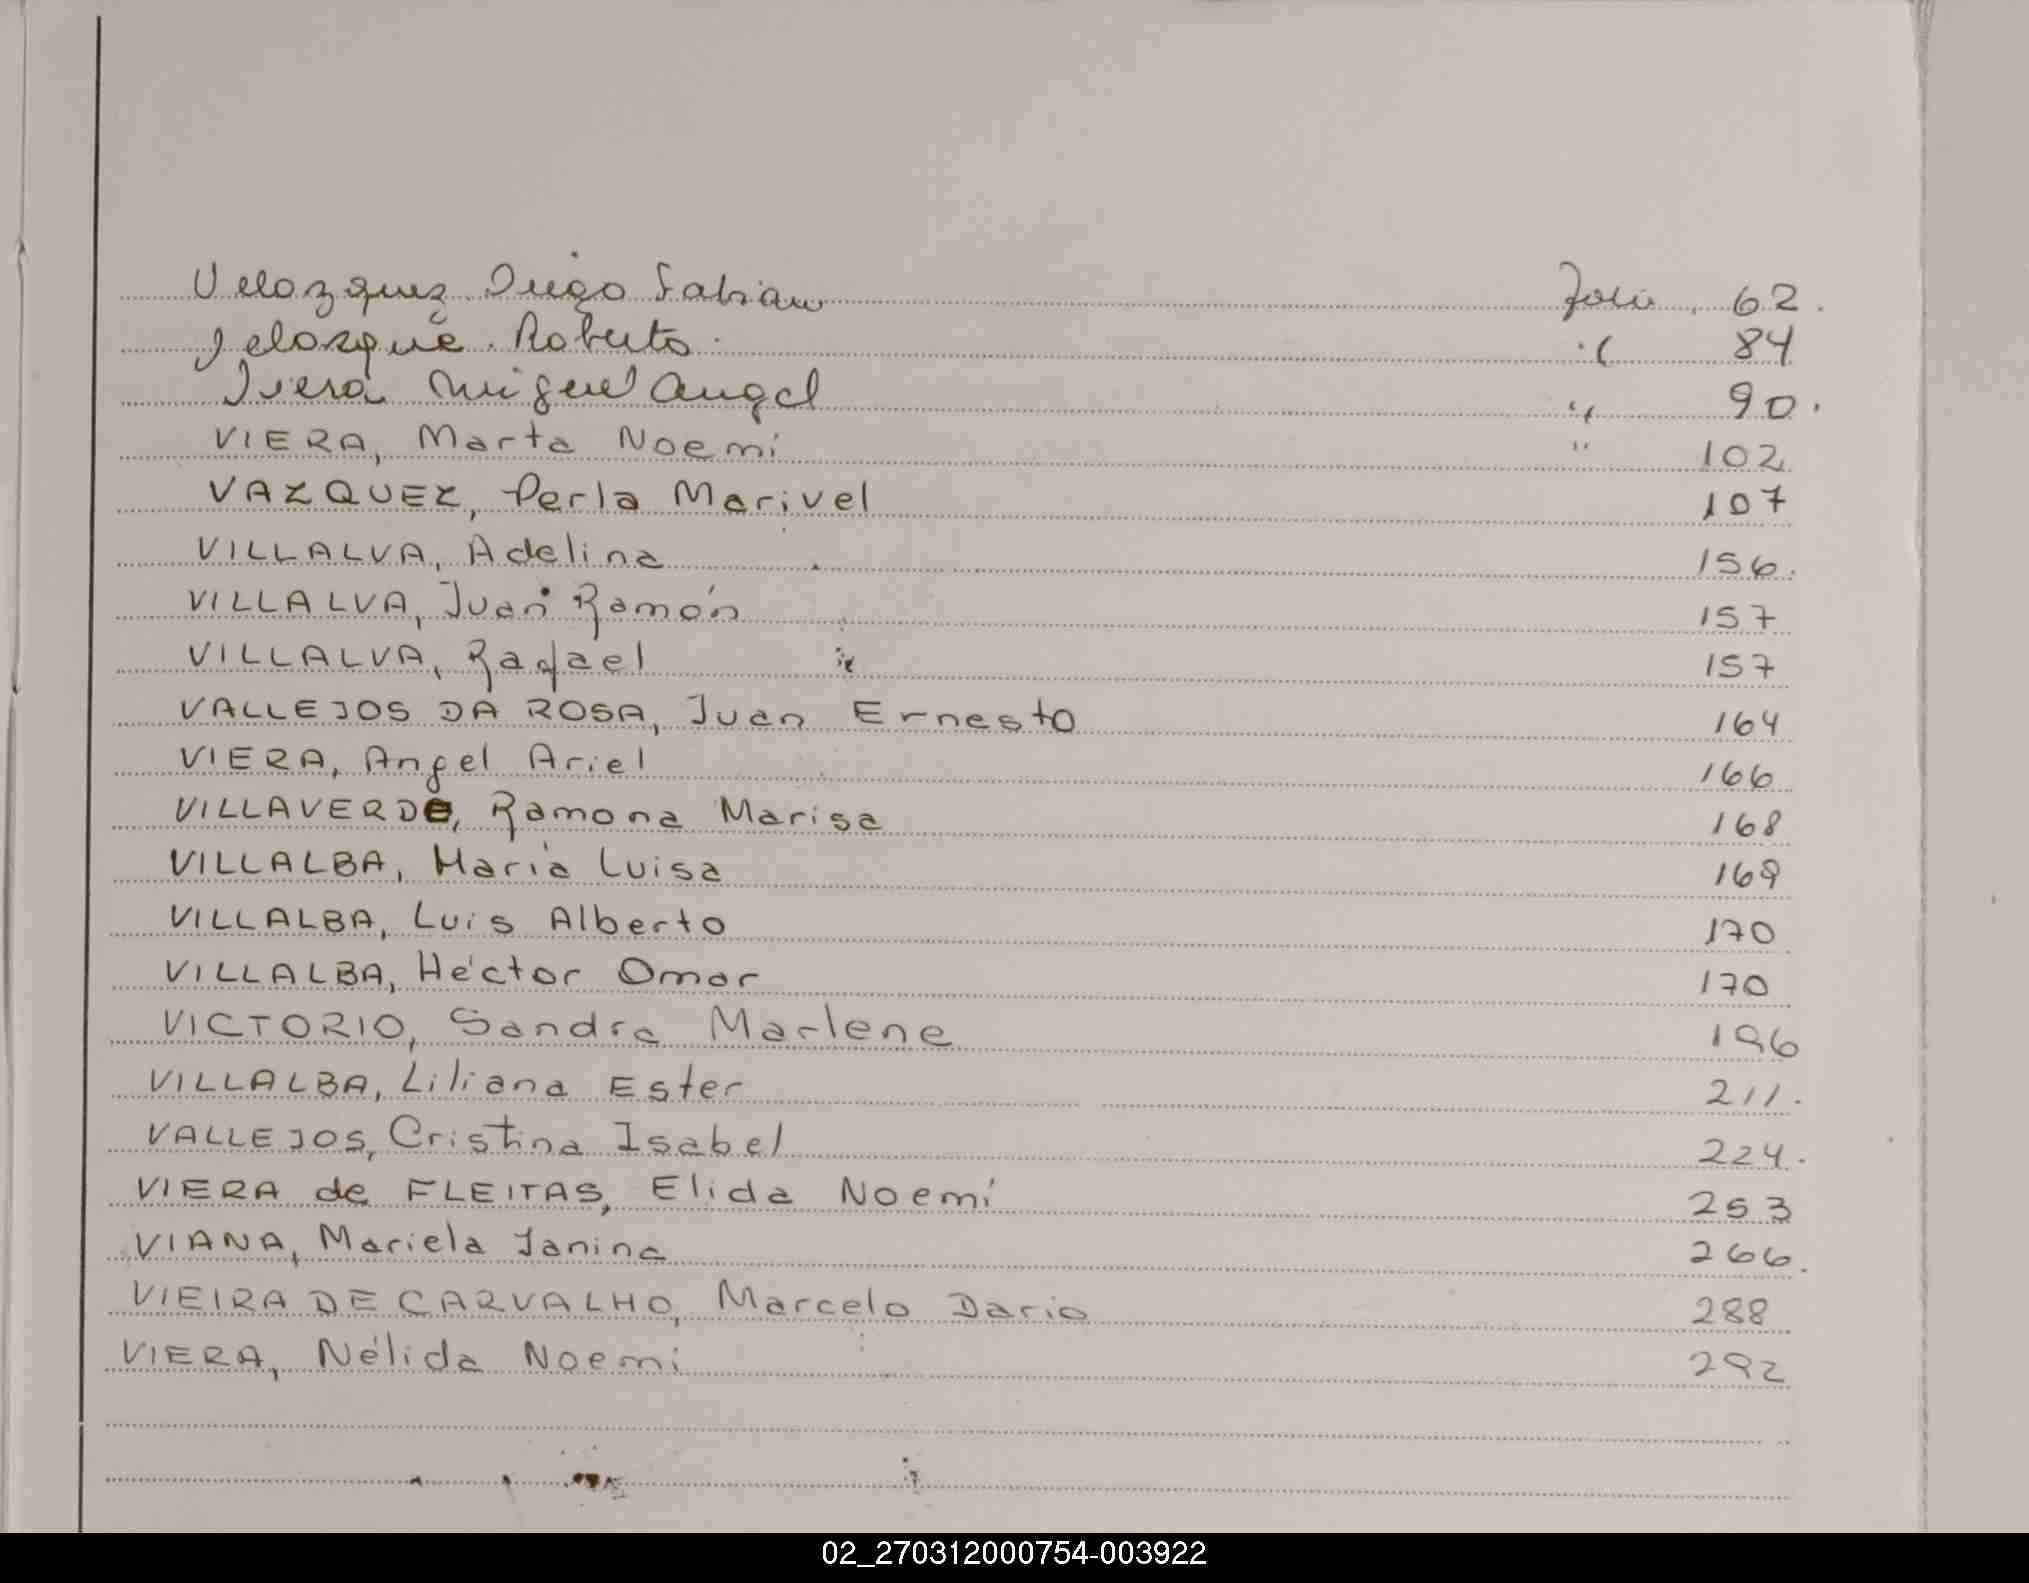 Velozquez Diego Fabian Folio 62.
Velozque Roberto. " 84
Viera Miguel Angel " 90.
VIERA, Marta Noemí " 102
VAZQUEZ, Perla Marivel 107
VILLALVA, Adelina 156.
VILLALVA, Juan Ramón 157
VILLALVA, Rafael 157
VALLEJOS DA ROSA, Juan Ernesto 164
VIERA, Angel Ariel 166
VILLAVERDe, Ramona Marisa 168
VILLALBA, María Luisa 169
VILLALBA, Luis Alberto 170
VILLALBA, Héctor Omar 170
VICTORIO, Sandra Marlene 196
VILLALBA, Liliana Ester 211.
VALLEJOS, Cristina Isabel 224.
VIERA de FLEITAS, Elida Noemí 253
VIANA, Mariela Janina 266.
VIEIRA DE CARVALHO, Marcelo Dario 288
VIERA, Nélida Noemi 292
02_270312000754-003922